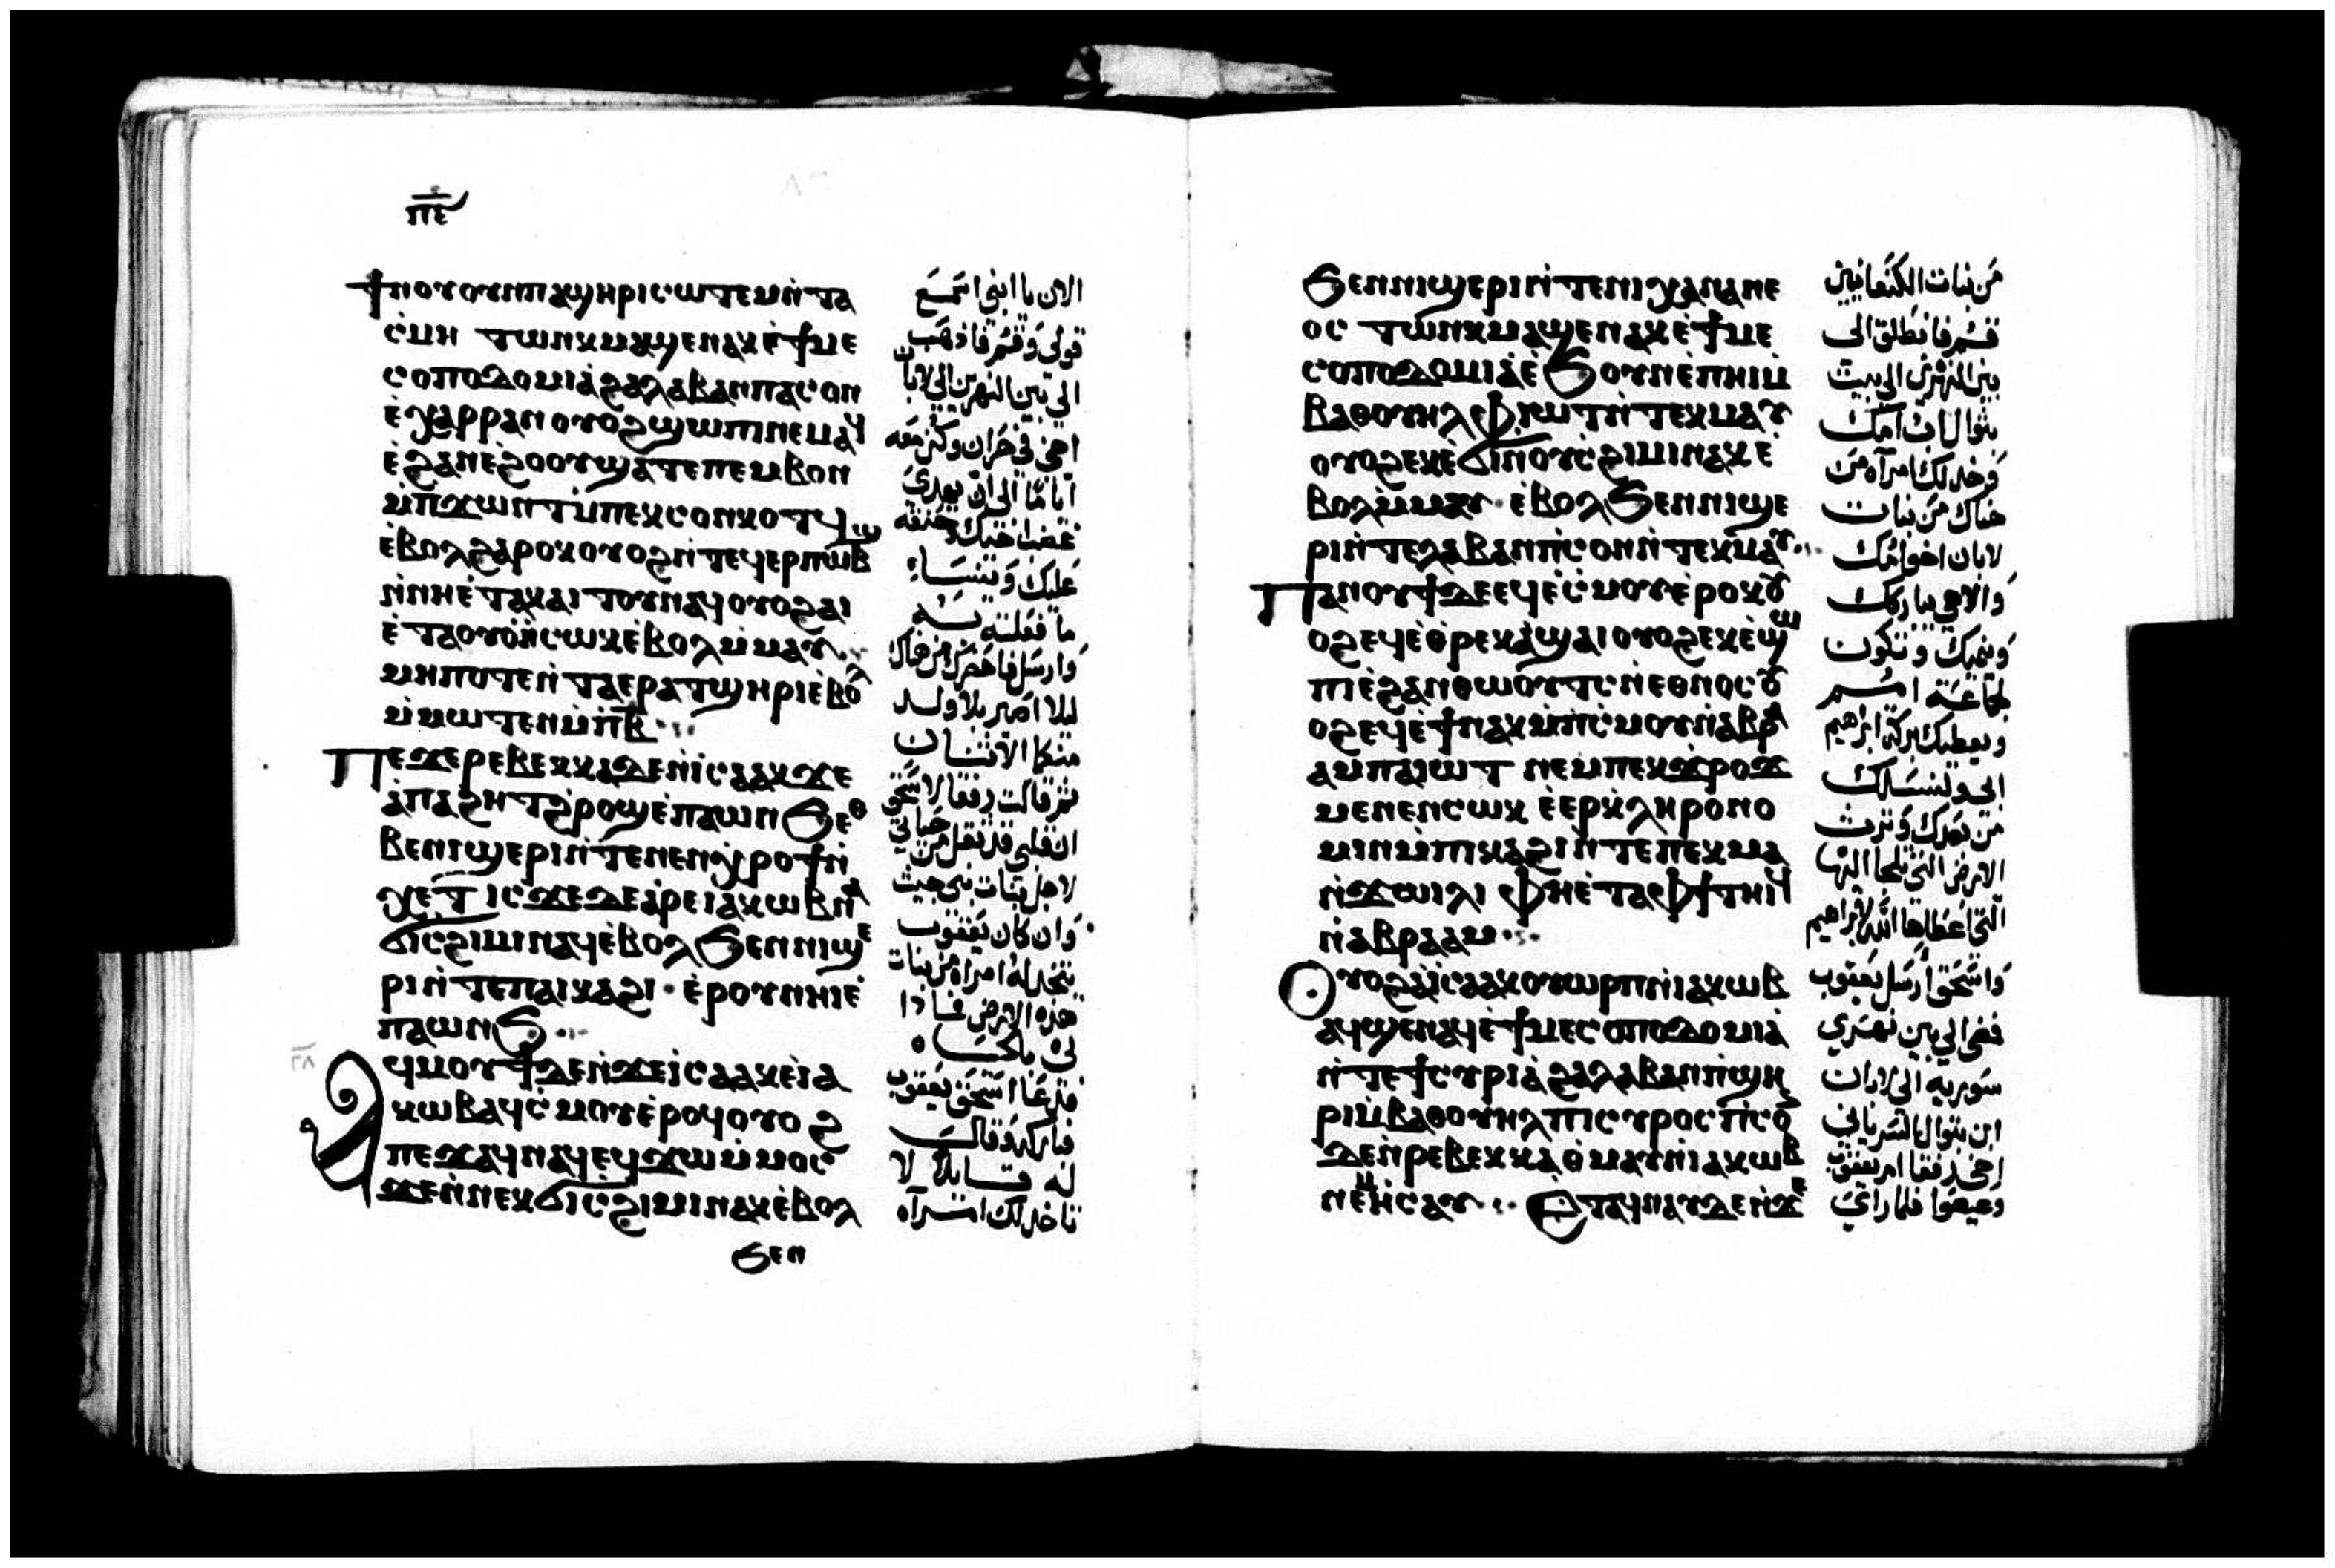 ⲡⲉ
ϯⲛⲟⲩ ⲟⲩⲛ ⲡⲁϣⲏⲣⲓ ⲥⲱⲧⲉⲙ ⲛ̀ⲧⲁ
ⲥ̀ⲙⲏ ⲧⲱⲛⲕ ⲙⲁϣⲉⲛⲁⲕ ⲉ̀ϯⲙⲉ
ⲥⲟⲡⲟⲇⲟⲙⲓⲁ̀ ϩⲁ ⲗⲁⲃⲁⲛ ⲡⲁⲥⲟⲛ
ⲉ̀ⲭⲁⲣⲣⲁⲛ ⲟⲩⲟϩ ϣⲱⲡⲓ ⲛⲉⲙⲁϥ
ⲉ̀ϩⲁⲛⲉ̀ϩⲟⲟⲩ ϣⲁⲧⲉ ⲡⲉⲙⲃⲟⲛ
ⲙ̀ⲡϫⲱⲛⲧ ⲙ̀ⲡⲉⲕⲥⲟⲛ ⲕⲟⲧϥ
ⲉ̀ⲃⲟⲗ ϩⲁⲣⲟⲕ ⲟⲩⲟϩ ⲛ̀ⲧⲉϥⲉⲣⲡⲱⲃϣ
ⲛ̀ⲛⲏⲉ̀ⲧⲁⲕⲁⲓⲧⲟⲩ ⲛⲁϥ ⲟⲩⲟϩ ⲁⲓ
ⲉ̀ⲧⲁⲟⲩⲟ̀ ⲛ̀ⲥⲱⲕ ⲉ̀ⲃⲟⲗ ⲙ̀ⲙⲁⲩ
ⲙⲏⲡⲟⲧⲉ ⲛ̀ⲧⲁⲉⲣⲁⲧϣⲏⲣⲓ ⲉ̀ⲃⲟⲗ
ⲙ̀ⲙⲱⲧⲉⲛ ⲙ̀ⲡⲃ̅
Ⲡⲉϫⲉ ⲣⲉⲃⲉⲕⲕⲁ ⲇⲉ ⲛ̀ⲓⲥⲁⲁⲕ ϫⲉ
ⲁ̀ ⲡⲁϩⲏⲧ ϩ̀ⲣⲟϣ ⲉ̀ⲡⲁⲱⲛϧ ⲉⲑ
ⲃⲉ ⲛⲓϣⲉⲣⲓ ⲛ̀ⲧⲉ ⲛⲉⲛϣ̀ⲣⲟϯ ⲛ̀
ⲭⲉⲧ ⲓⲥϫⲉ ⲇⲉ ⲁ̀ⲣⲉ ⲓⲁⲕⲱⲃ ⲛⲁ
ϭⲓⲥϩⲓⲙⲓ ⲛⲁϥ ⲉ̀ⲃⲟⲗ ϧⲉⲛ ⲛⲓϣⲉ
ⲣⲓ ⲛ̀ⲧⲉ ⲡⲁⲓⲕⲁϩⲓ ⲉ̀ⲣⲟⲩ ⲛⲏⲓ ⲉ̀
ⲡⲁⲱⲛϧ
Ⲁϥⲙⲟⲩϯ ⲇⲉ ⲛ̀ϫⲉ ⲓⲥⲁⲁⲕ ⲉ̀ⲓⲁ
ⲕⲱⲃ ⲁϥⲥ̀ⲙⲟⲩ ⲉ̀ⲣⲟϥ ⲟⲩⲟϩ
ⲡⲉϫⲁϥ ⲛⲁϥ ⲉϥϫⲱ ⲙ̀ⲙⲟⲥ
ϫⲉ ⲛ̀ⲛⲉⲕϭⲓⲥϩⲓⲙⲓ ⲛⲁⲕ ⲉ̀ⲃⲟⲗ
ϧⲉⲛ
الان يا ابني اسمع
قولي وقم فاذهب
الي بين النهرين الي لابان
اخي في حران وكن معه
اياما الي ان يهدي
غضب اخيك وحنقه
عليك وينسا
ما فعلته به
وارسل فاحضرك من هناك
ليلا اصير بلا ولد
منكما الاثنان
ثم قالت رفقا لاسحق
ان قلبي قد ثقل من حياتي
لاجل بنات بني حيث
وان كان يعقوب
يتخد له امراه من بنات
هذه الارض فما ذا
لي بالحياه
فدعا اسحق يعقوب
فباركه وقال
له قايلا لا
تاخد لك امراه
ϧⲉⲛ ⲛⲓϣⲉⲣⲓ ⲛ̀ⲧⲉ ⲛⲓⲭⲁⲛⲁⲛⲉ
ⲟⲥ ⲧⲱⲛⲕ ⲙⲁϣⲉⲛⲁⲕ ⲉ̀ϯⲙⲉ
ⲥⲟⲡⲟⲇⲟⲙⲓⲁ̀ ⲉ̀ϧⲟⲩⲛ ⲉ̀ⲡⲏⲓ ⲙ̀
ⲃⲁⲑⲟⲩⲏⲗ ⲫ̀ⲓⲱⲧ ⲛ̀ⲧⲉⲕⲙⲁⲩ
ⲟⲩⲟϩ ⲉⲕⲉ̀ϭⲓ ⲛ̀ⲟⲩⲥ̀ϩⲓⲙⲓ ⲛⲁⲕ ⲉ̀
ⲃⲟⲗ ⲙ̀ⲙⲁⲩ ⲉ̀ⲃⲟⲗ ϧⲉⲛ ⲛⲓϣⲉ
ⲣⲓ ⲛ̀ⲧⲉ ⲗⲁⲃⲁⲛ ⲡ̀ⲥⲟⲛ ⲛ̀ⲧⲉⲕⲙⲁⲩ
Ⲡⲁⲛⲟⲩϯ ⲇⲉ ⲉϥⲉ̀ⲥ̀ⲙⲟⲩ ⲉ̀ⲣⲟⲕ ⲟⲩ
ⲟϩ ⲉϥⲉ̀ⲑ̀ⲣⲉⲕⲁ̀ϣⲁⲓ ⲟⲩⲟϩ ⲉⲕⲉ̀ϣⲱ
ⲡⲓ ⲉ̀ϩⲁⲛⲑⲱⲟⲩⲧⲥ ⲛ̀ⲉⲑⲛⲟⲥ ⲟⲩ
ⲟϩ ⲉϥⲉ̀ϯ ⲛⲁⲕ ⲙ̀ⲡⲥ̀ⲙⲟⲩ ⲛ̀ⲁⲃⲣⲁ
ⲁⲙ ⲡⲁⲓⲱⲧ ⲛⲉⲙ ⲡⲉⲕϫ̀ⲣⲟϫ
ⲙⲉⲛⲉⲛⲥⲱⲕ ⲉ̀ⲉⲣⲕ̀ⲗⲏⲣⲟⲛⲟ
ⲙⲓⲛ ⲙ̀ⲡⲓⲕⲁϩⲓ ⲛ̀ⲧⲉ ⲡⲉⲕⲙⲁ
ⲛ̀ϫⲱⲓⲗⲓ ⲫⲏⲉ̀ⲧⲁ ⲫϯ ⲧⲏⲓϥ
ⲛ̀ⲁⲃⲣⲁⲁⲙ
Ⲟⲩⲟϩ ⲁ̀ ⲓⲥⲁⲁⲕ ⲟⲩⲱⲣⲡ ⲛ̀ⲓⲁⲕⲱⲃ
ⲁϥϣⲉⲛⲁϥ ⲉ̀ϯⲙⲉⲥⲟⲡⲟⲇⲟⲙⲓⲁ̀
ⲛ̀ⲧⲉ ϯⲥⲩⲣⲓⲁ̀ ϩⲁ ⲗⲁⲃⲁⲛ ⲡ̀ϣⲏ
ⲣⲓ ⲙ̀ⲃⲁⲑⲟⲩⲏⲗ ⲡⲓⲥⲩⲣⲟⲥ ⲡ̀ⲥⲟⲛ
ⲇⲉ ⲛ̀ⲣⲉⲃⲉⲕⲕⲁ ⲑ̀ⲙⲁⲩ ⲛ̀ⲓⲁⲕⲱⲃ
ⲛⲉⲙ ⲏ̀ⲥⲁⲩ Ⲉⲧⲁϥⲛⲁⲩ ⲇⲉ ⲛ̀ϫⲉ
من بنات الكنعانيين
قم فانطلق الي
بين النهرين الي بيت
بتوال اب امك
وخد لك امراه من
هناك من بنات
لابان اخو امك
والاهي يباركك
وينميك وتكون
لجماعة امم
ويعطيك بركة ابراهيم
ابي ولنسلك
من بعدك وترث
الارض التي تلجا اليها
التي اعطاها الله لابراهيم
واسحق ارسل يعقوب
فمضي الي بين نهري
سوريه الي لابان
ابن بتوال السرياني
اخي رفقا ام يعقوب
وعيصوا فلما راي